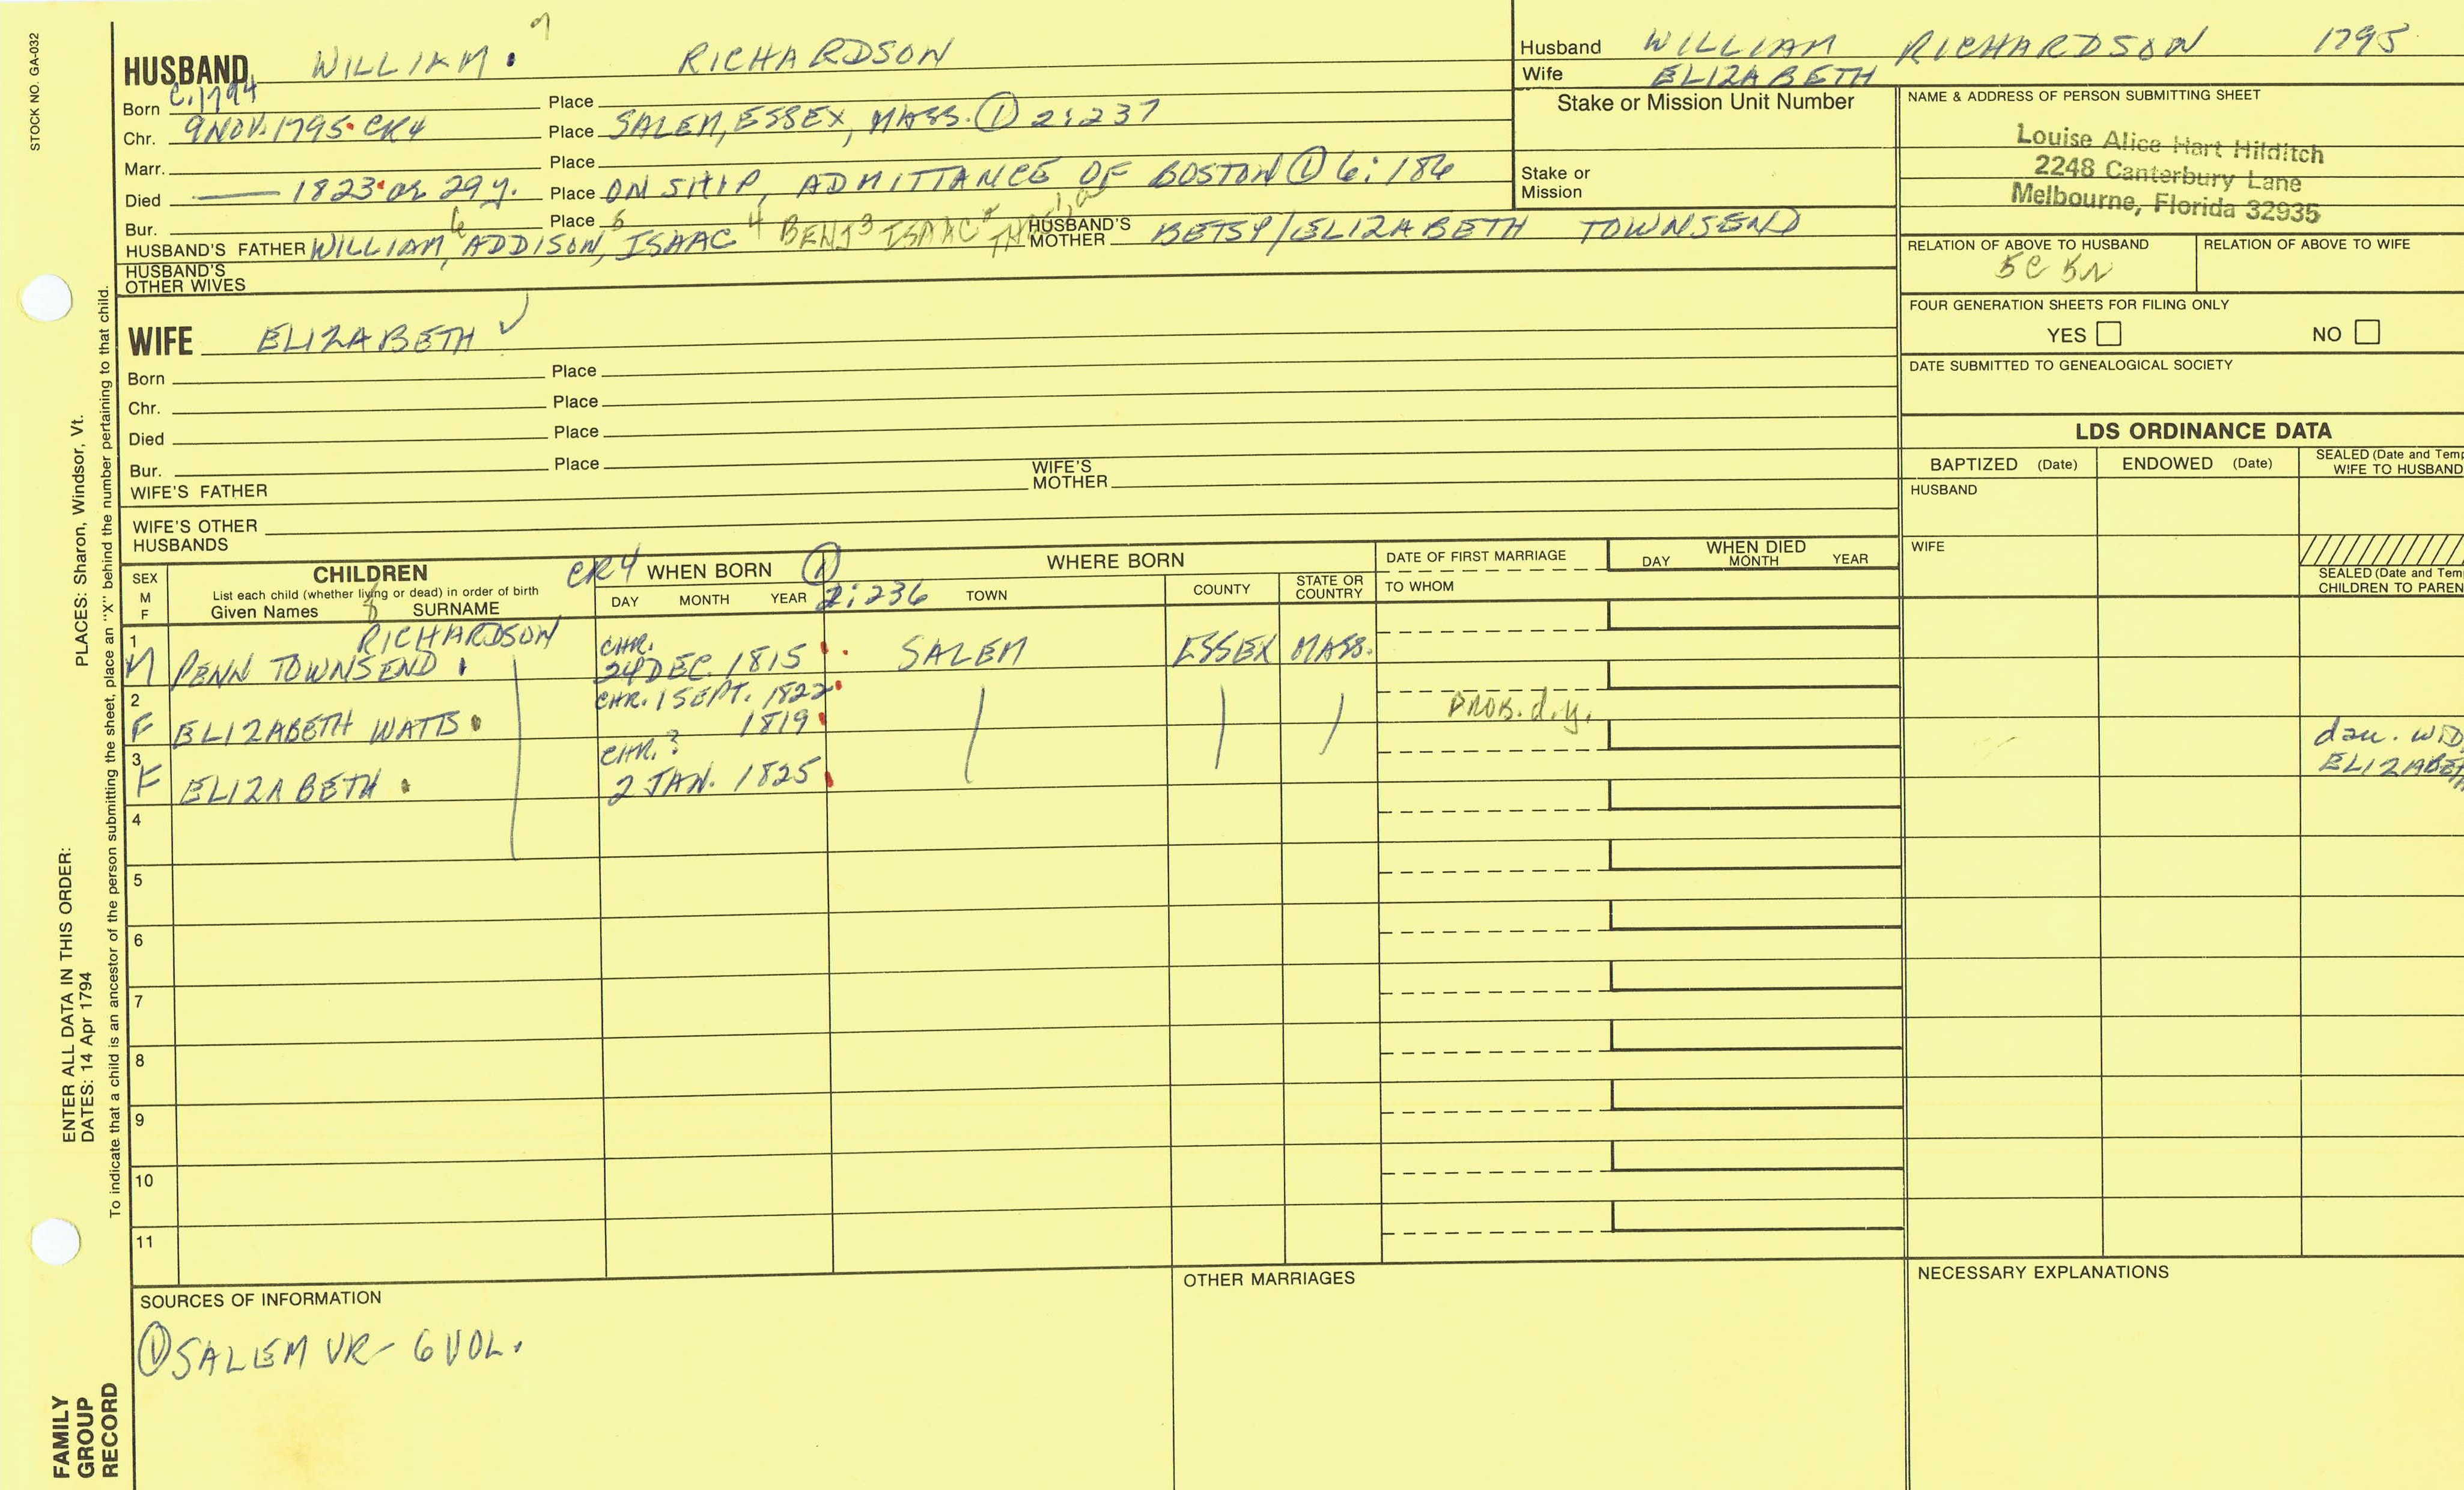 STOCK NO. GA-032
7
HUSBAND WILLIAM. RICHARDSON
Born C.1794 Place
Chr. 9 NOV. 1795. CR4 Place SALEM, ESSEX, MASS. ① 2:237
Marr. Place
Died —— 1823. ae 29 y. Place ON SHIP, ADMITTANCE OF BOSTON ① 6:186
Bur. Place
HUSBAND'S FATHER WILLIAM, 6 ADDISON, 5 ISAAC 4 BENJ 3 ISAAC 2 HUSBAND'S MOTHER BETSY/ELIZABETH TOWNSEND
HUSBAND'S OTHER WIVES
Husband WILLIAM RICHARDSON 1795
Wife ELIZABETH
Stake or Mission Unit Number
Stake or Mission
NAME & ADDRESS OF PERSON SUBMITTING SHEET
Louise Alice Hart Hilditch
2248 Canterbury Lane
Melbourne, Florida 32935
RELATION OF ABOVE TO HUSBAND RELATION OF ABOVE TO WIFE
5C 5R
FOUR GENERATION SHEETS FOR FILING ONLY
YES NO
DATE SUBMITTED TO GENEALOGICAL SOCIETY
WIFE ELIZABETH ✓
Born Place
Chr. Place
Died Place
Bur. Place
WIFE'S FATHER WIFE'S MOTHER
WIFE'S OTHER HUSBANDS
LDS ORDINANCE DATA
BAPTIZED (Date) ENDOWED (Date) SEALED (Date and Temp
WIFE TO HUSBAND
HUSBAND
WIFE
SEALED (Date and Temp
CHILDREN TO PAREN
SEX M F CHILDREN
List each child (whether living or dead) in order of birth
Given Names 8 SURNAME
CR4 WHEN BORN ① 2:236
DAY MONTH YEAR
WHERE BORN
TOWN COUNTY STATE OR COUNTRY
DATE OF FIRST MARRIAGE
TO WHOM
WHEN DIED
DAY MONTH YEAR
1 RICHARDSON CHR.
M PENN TOWNSEND . 24 DEC. 1815 . SALEM ESSEX MASS.
2 CHR. 1 SEPT. 1822
F ELIZABETH WATTS . 1819 PROB. d.y.
3 CHR. ?
F ELIZABETH . 2 JAN. 1825 dau. WID
ELIZABETH
4
5
6
7
8
9
10
11
SOURCES OF INFORMATION
① SALEM VR - 6 VOL.
OTHER MARRIAGES
NECESSARY EXPLANATIONS
PLACES: Sharon, Windsor, Vt.
ENTER ALL DATA IN THIS ORDER:
DATES: 14 Apr 1794
To indicate that a child is an ancestor of the person submitting the sheet, place an "X" behind the number pertaining to that child.
FAMILY
GROUP
RECORD